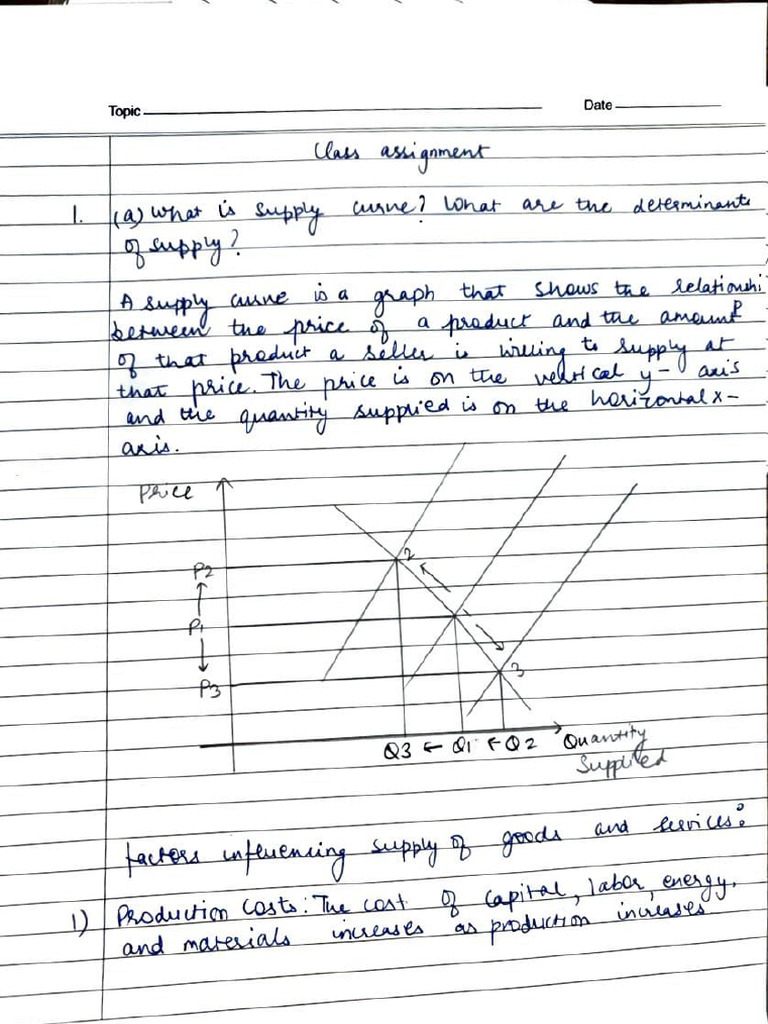 Topic
Date
Class assignment
1. (a) What is supply curve? What are the determinants
of supply?
A supply curve is a graph that shows the relationship
between the price of a product and the amount
of that product a seller is willing to supply at
that price. The price is on the vertical y- axis
and the quantity supplied is on the horizontal x-
axis.
Price
2
P2
P1
3
P3
Q3 ← Q1 ← Q2 Quantity
Supplied
factors influencing supply of goods and services:
1) Production costs: The cost of capital, labor, energy,
and materials increases as production increases